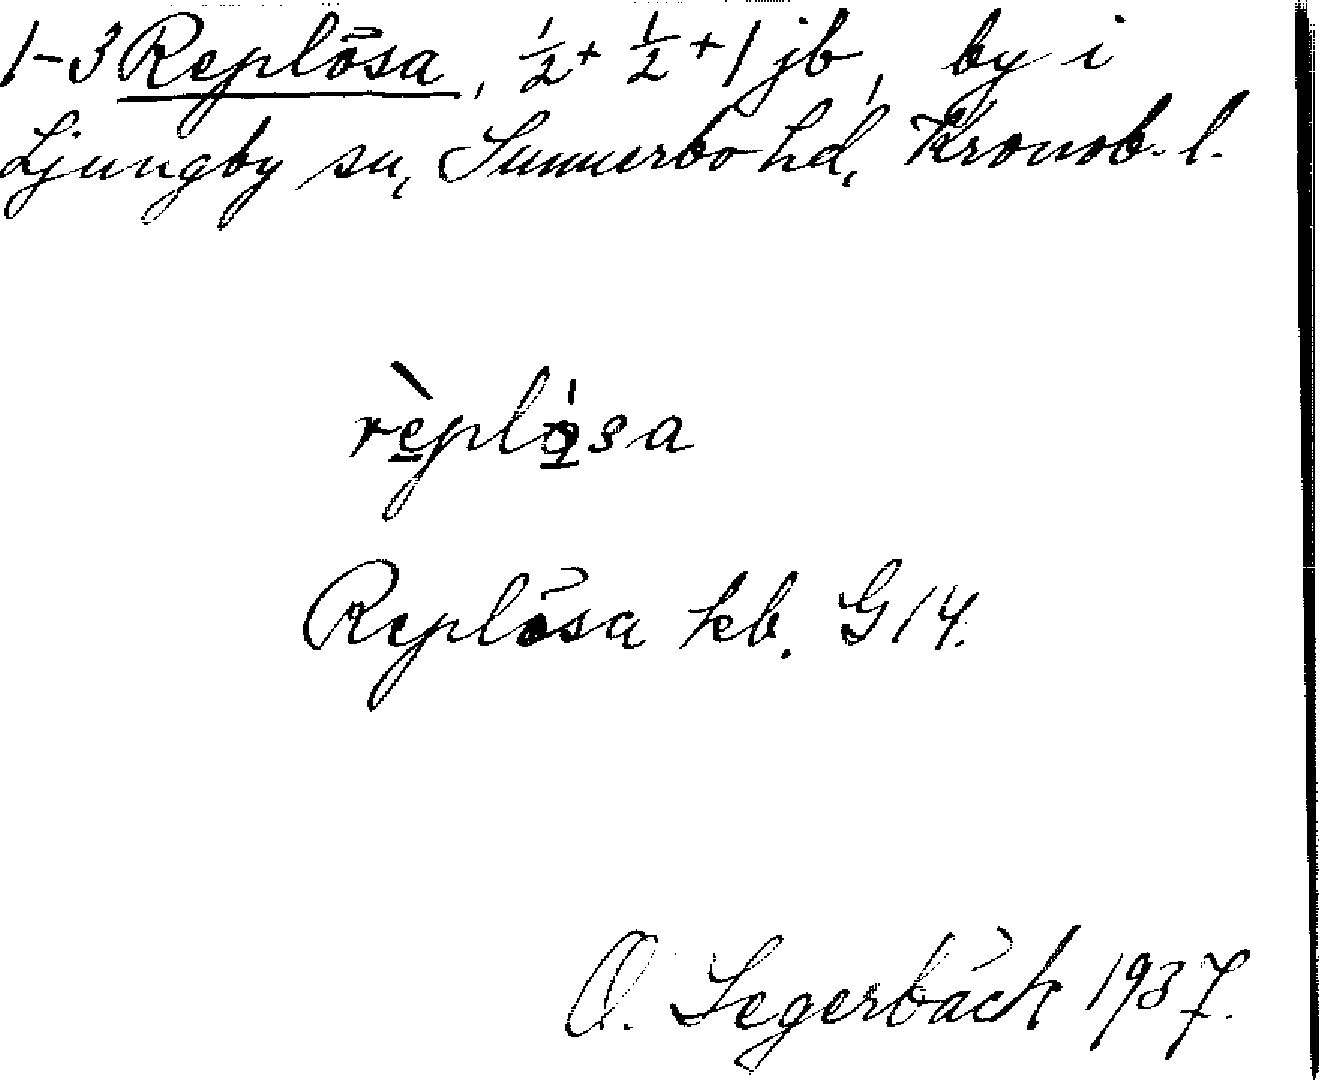 1-3 Replösa, ½ + ½ + 1 jb, by i
Ljungby sn, Sunnerbo hd, Kronob. l.
rèplǫ́sa
Replösa kb. G 14.
O. Segerbäck 1937.